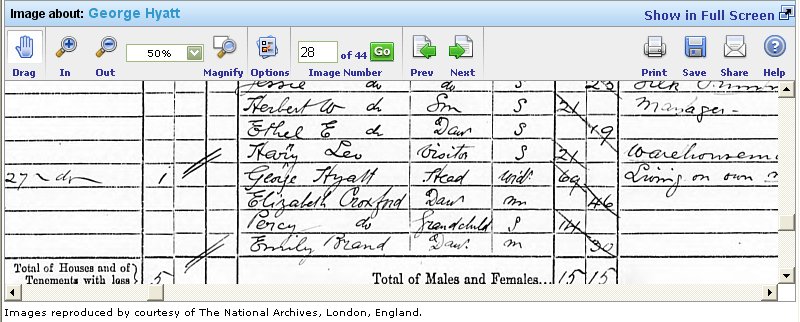 Image about: George Hyatt Show in Full Screen
50% 28 of 44 Go
Drag In Out Magnify Options Image Number Prev Next Print Save Share Help
Jessie do do 23
Herbert W do Son S 21 Manager
Ethel E do Daur S 19
Harry Leo Visitor S 21
27 do 1 George Hyatt Head Widr 69 Living on own
Elizabeth Croxford Daur m 46
Percy do Grandchild S 14
Emily Brand Daur m 30
Total of Houses and of
Tenements with less 5 Total of Males and Females... 15 15
Images reproduced by courtesy of The National Archives, London, England.